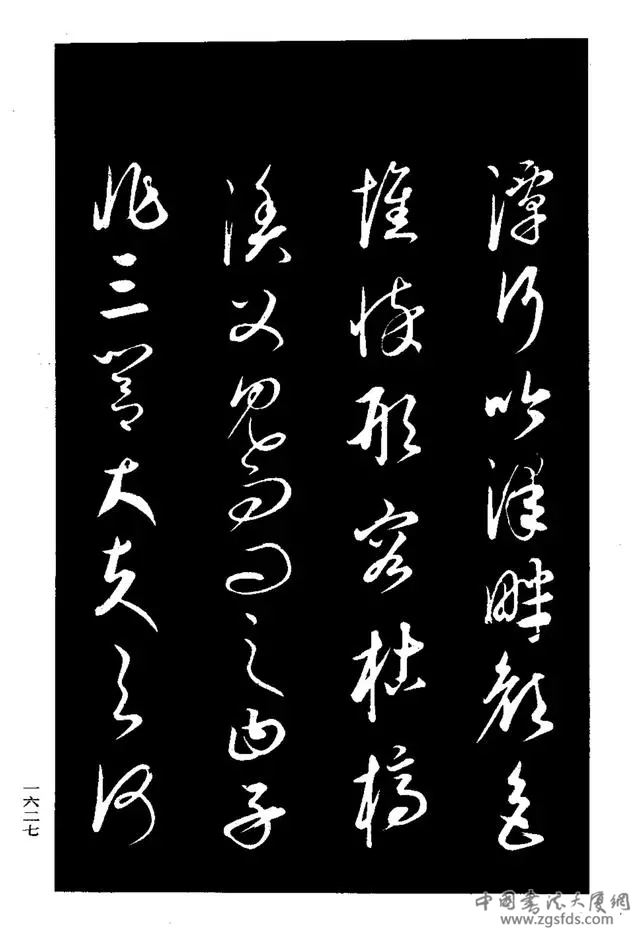 潭行吟澤畔顏色
憔悴形容枯槁
漁父見而問之曰子
非三閭大夫与何
一六二七
中国書法大厦網
www.zgsfds.com